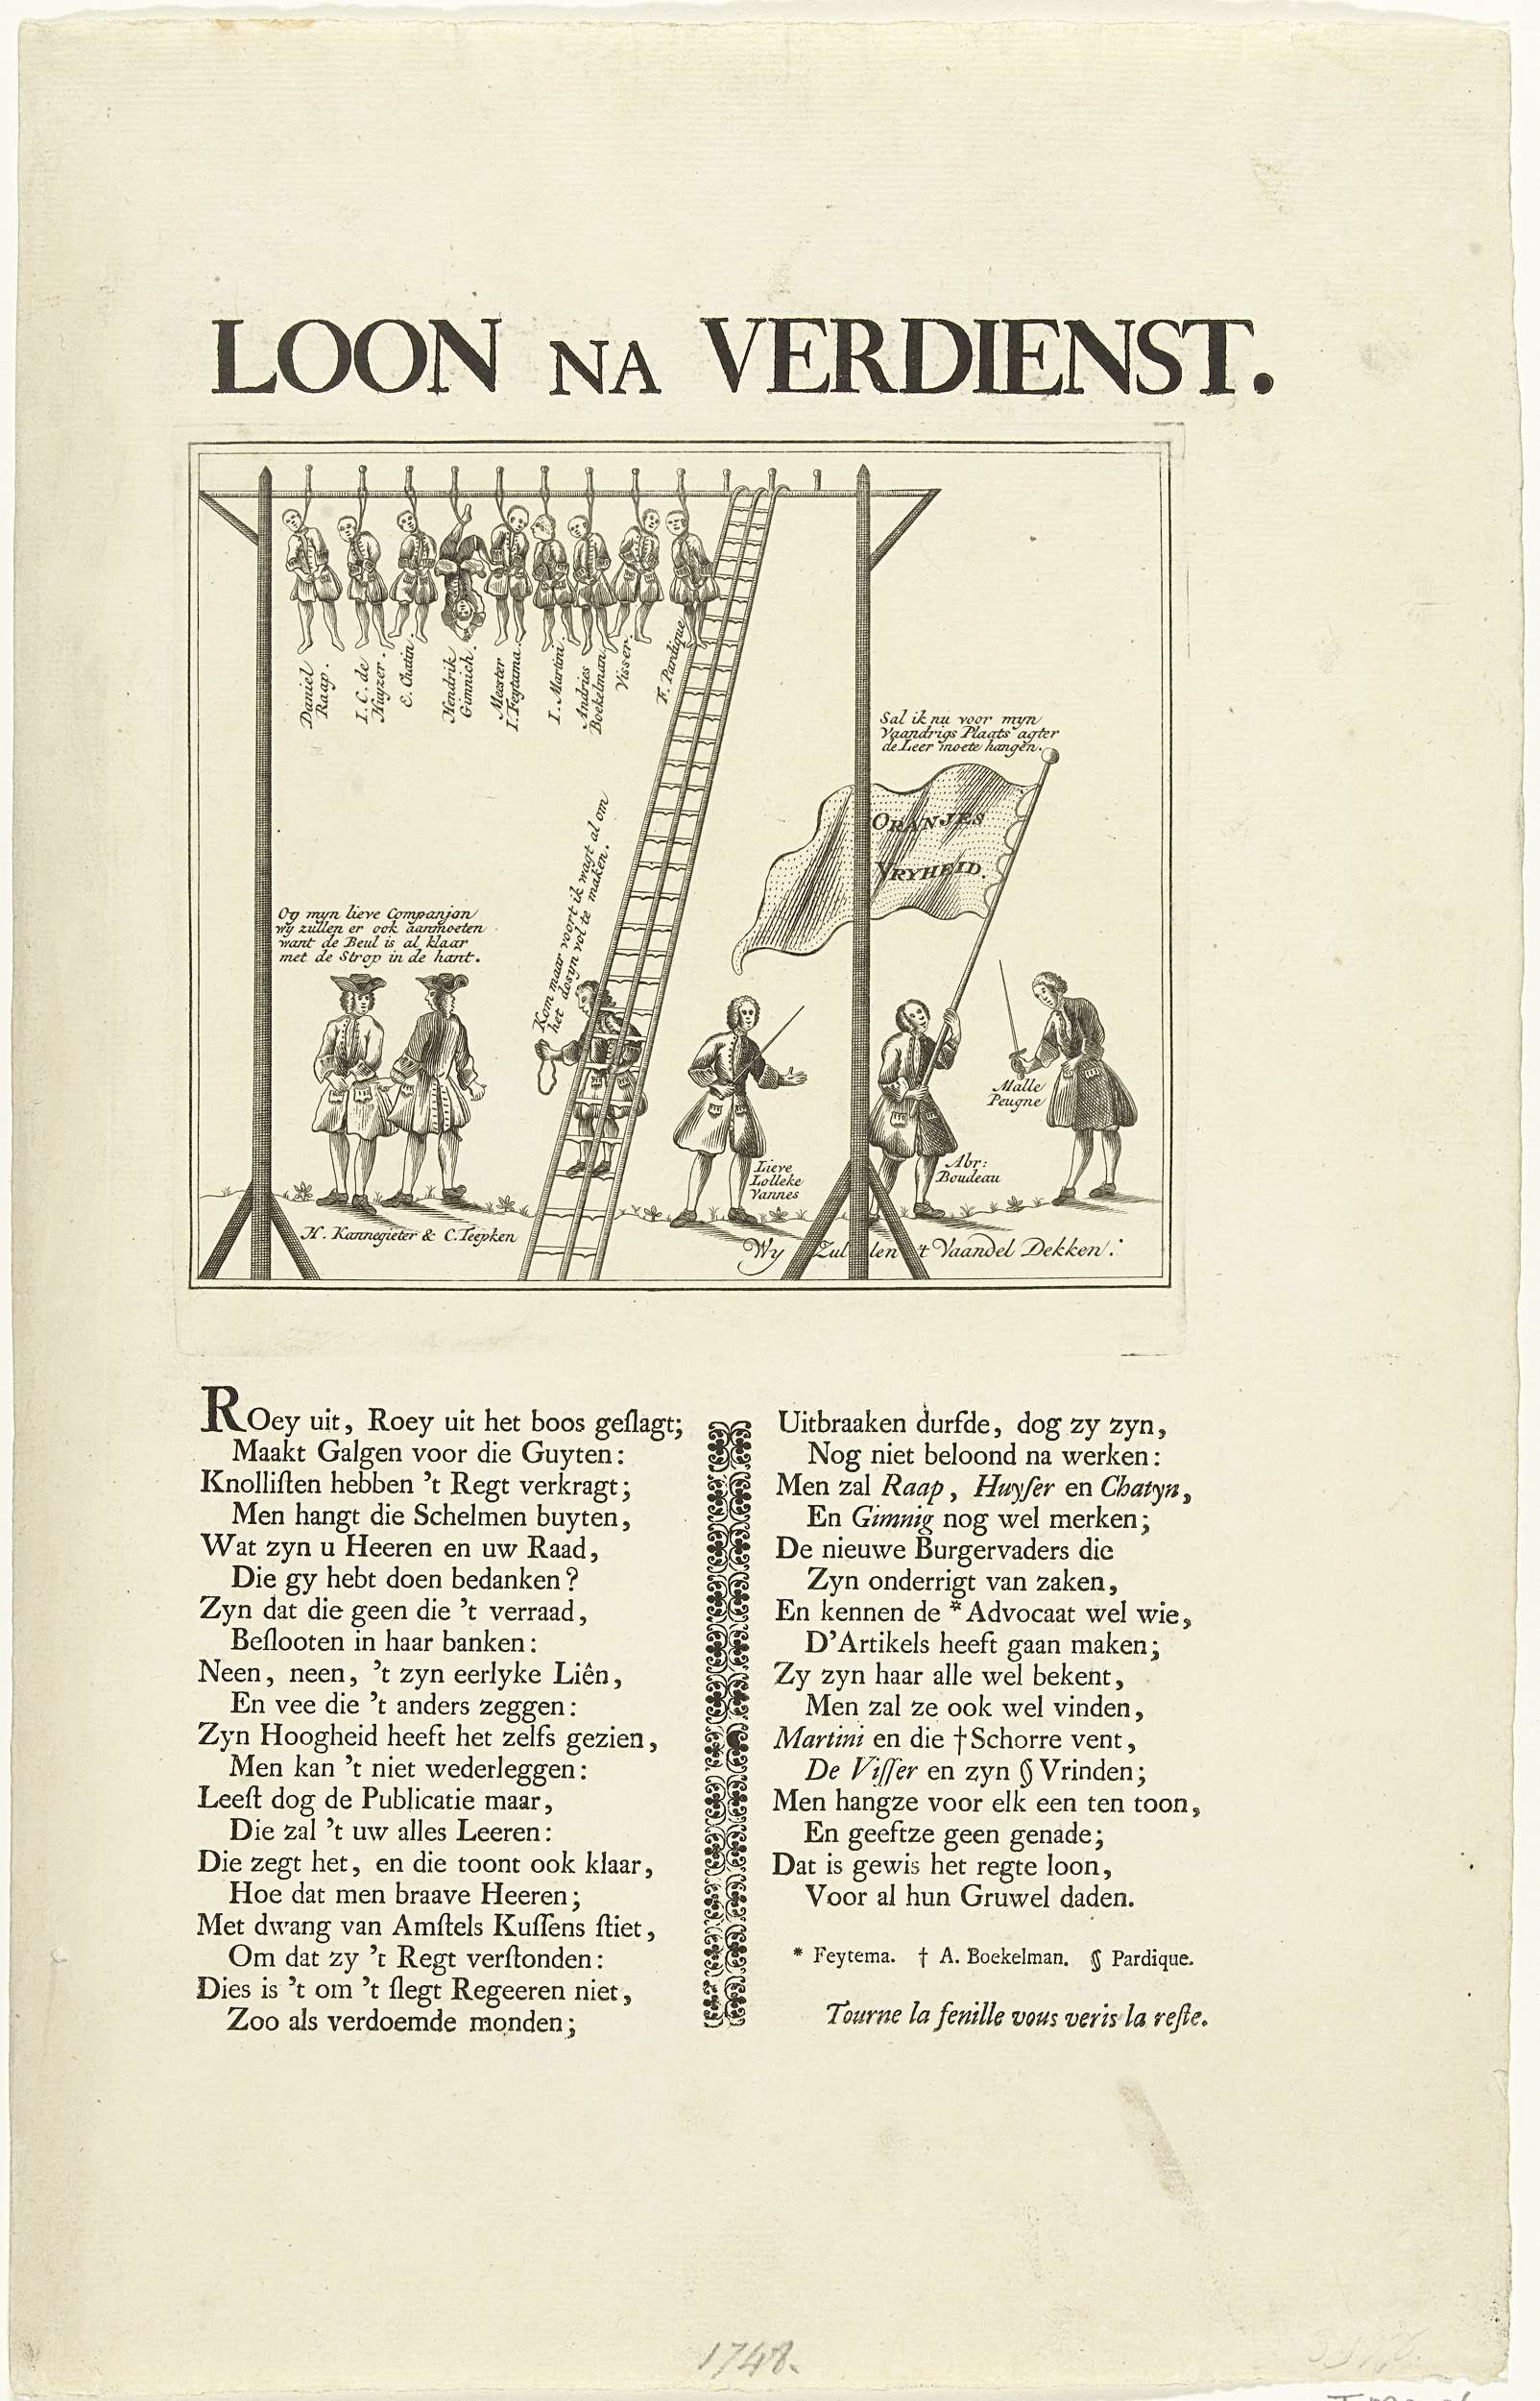 LOON NA VERDIENST.
Daniel
Raap.
I. C. de
Huyzer.
E. Chatin.
Hendrik
Gimnich.
Meester
I. Feytama.
I. Martini.
Andries
Boekelman.
Visser.
F. Pardique.
Sal ik nu voor myn
Vaandrigs Plaats agter
de Leer moete hangen.
ORANJES
VRYHEID.
Og myn lieve Companjon
wy zullen er ook aanmoeten
want de Beul is al klaar
met de Strop in de hant.
Kom maar voort ik wagt al om
het dosyn vol te maken.
Malle
Peugne
Lieve
Lolleke
Vannes
Abr:
Boudeau
H. Kannegieter & C. Teepken
Wy Zullen 't Vaandel Dekken.
ROey uit, Roey uit het boos geſlagt;
Maakt Galgen voor die Guyten:
Knolliſten hebben 't Regt verkragt;
Men hangt die Schelmen buyten,
Wat zyn u Heeren en uw Raad,
Die gy hebt doen bedanken?
Zyn dat die geen die 't verraad,
Beſlooten in haar banken:
Neen, neen, 't zyn eerlyke Liên,
En vee die 't anders zeggen:
Zyn Hoogheid heeft het zelfs gezien,
Men kan 't niet wederleggen:
Leeſt dog de Publicatie maar,
Die zal 't uw alles Leeren:
Die zegt het, en die toont ook klaar,
Hoe dat men braave Heeren;
Met dwang van Amſtels Kuſſens ſtiet,
Om dat zy 't Regt verſtonden:
Dies is 't om 't ſlegt Regeeren niet,
Zoo als verdoemde monden;
Uitbraaken durfde, dog zy zyn,
Nog niet beloond na werken:
Men zal Raap, Huyſer en Chatyn,
En Gimnig nog wel merken;
De nieuwe Burgervaders die
Zyn onderrigt van zaken,
En kennen de * Advocaat wel wie,
D'Artikels heeft gaan maken;
Zy zyn haar alle wel bekent,
Men zal ze ook wel vinden,
Martini en die † Schorre vent,
De Viſſer en zyn § Vrinden;
Men hangze voor elk een ten toon,
En geeftze geen genade;
Dat is gewis het regte loon,
Voor al hun Gruwel daden.
* Feytema. † A. Boekelman. § Pardique.
Tourne la fenille vous veris la reſte.
1748.